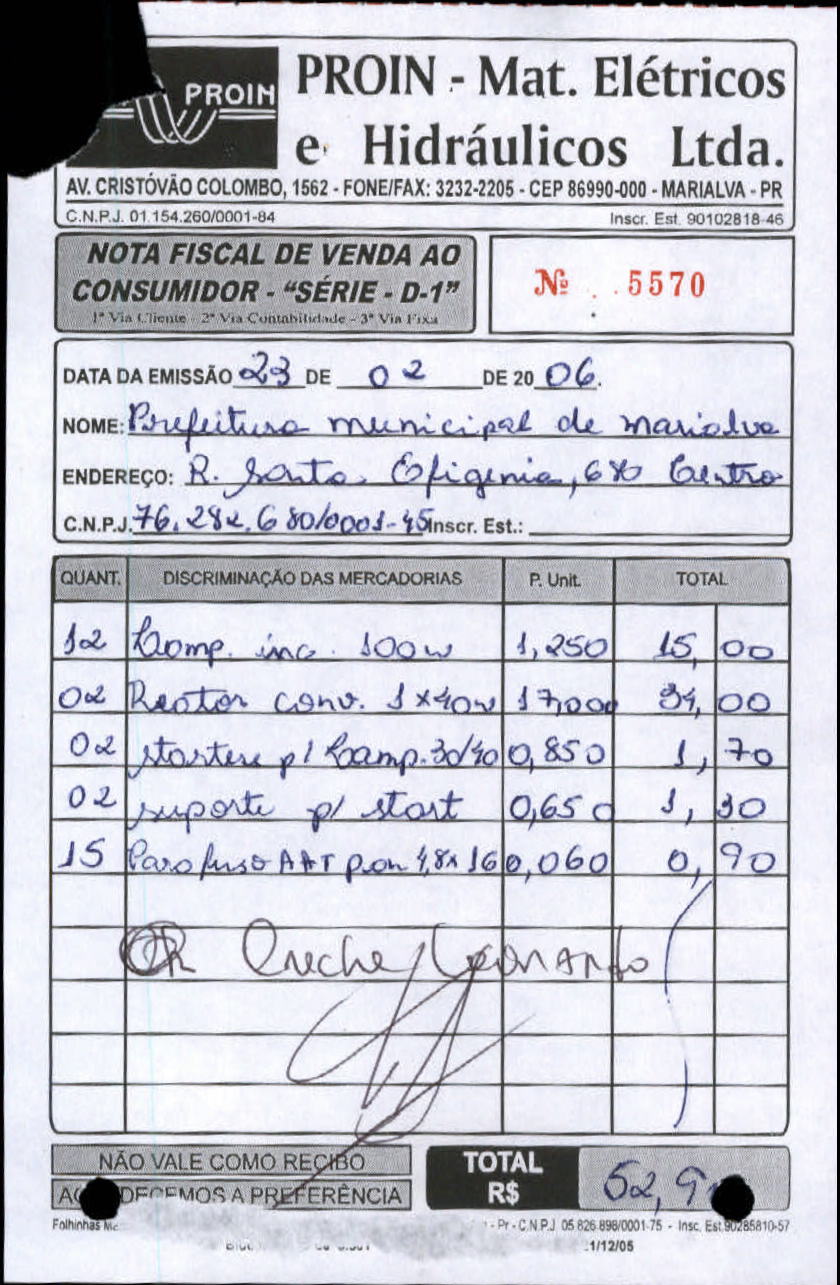 PROIN
PROIN - Mat. Elétricos
e Hidráulicos Ltda.
AV. CRISTÓVÃO COLOMBO, 1562 - FONE/FAX: 3232-2205 - CEP 86990-000 - MARIALVA - PR
C.N.P.J. 01.154.260/0001-84 Inscr. Est. 90102818-46
NOTA FISCAL DE VENDA AO
CONSUMIDOR - "SÉRIE - D-1"
1ª Via Cliente - 2ª Via Contabilidade - 3ª Via Fixa
Nº 5570
DATA DA EMISSÃO 23 DE 02 DE 20 06.
NOME: Prefeitura municipal de marialva
ENDEREÇO: R. Santa Efigenia, 680 Centro
C.N.P.J. 76.282.680/0001-45 Inscr. Est.:
QUANT. DISCRIMINAÇÃO DAS MERCADORIAS P. Unit. TOTAL
12 Lamp. inc. 100w 1,250 15,00
02 Reator conv. 1x40w 17,000 34,00
02 starters p/ Lamp. 30/40 0,850 1,70
02 suporte p/ start 0,650 1,30
15 Parafuso AAT pan 4,8x16 0,060 0,90
Creche Leonardo
NÃO VALE COMO RECIBO
DECEMOS A PREFERÊNCIA
TOTAL
R$ 52,9
Folhinhas - Pr - C.N.P.J 05.826.898/0001-75 - Insc. Est.90285810-57
1/12/05